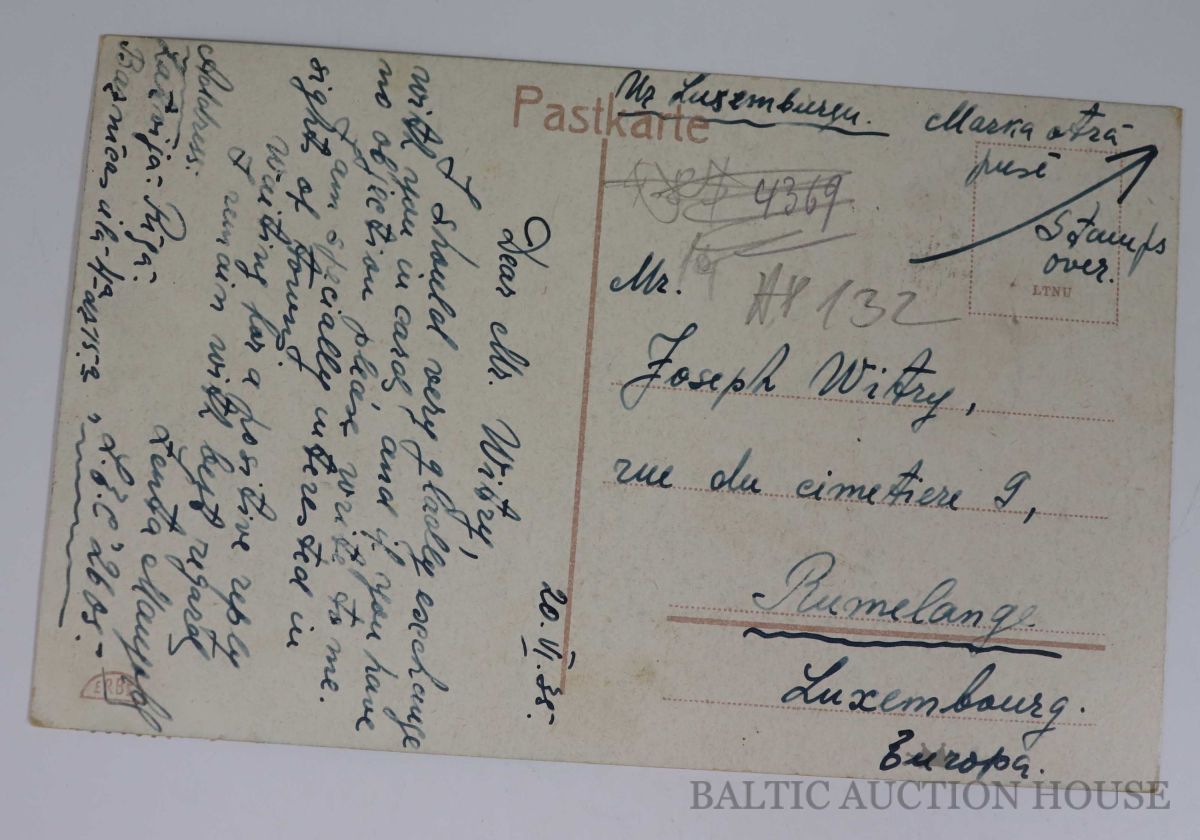 Pastkarte
Uz Luxemburgu.
Marka otrā
pusē
Stamps
over.
LTNU
4369
132
Mr.
Joseph Witry,
rue du cimetiere 9,
Rumelange
Luxembourg.
Europa.
20.VI.35.
Dear Mr. Witry,
I should very gladly exchange
with you in cards, and if you have
no objection please write to me.
I am specially interested in
sight of towns.
Waiting for a positive reply
I remain with best regards
Zenta
Address:
Latvija - Rīgā
Baznīcas ielā
BALTIC AUCTION HOUSE